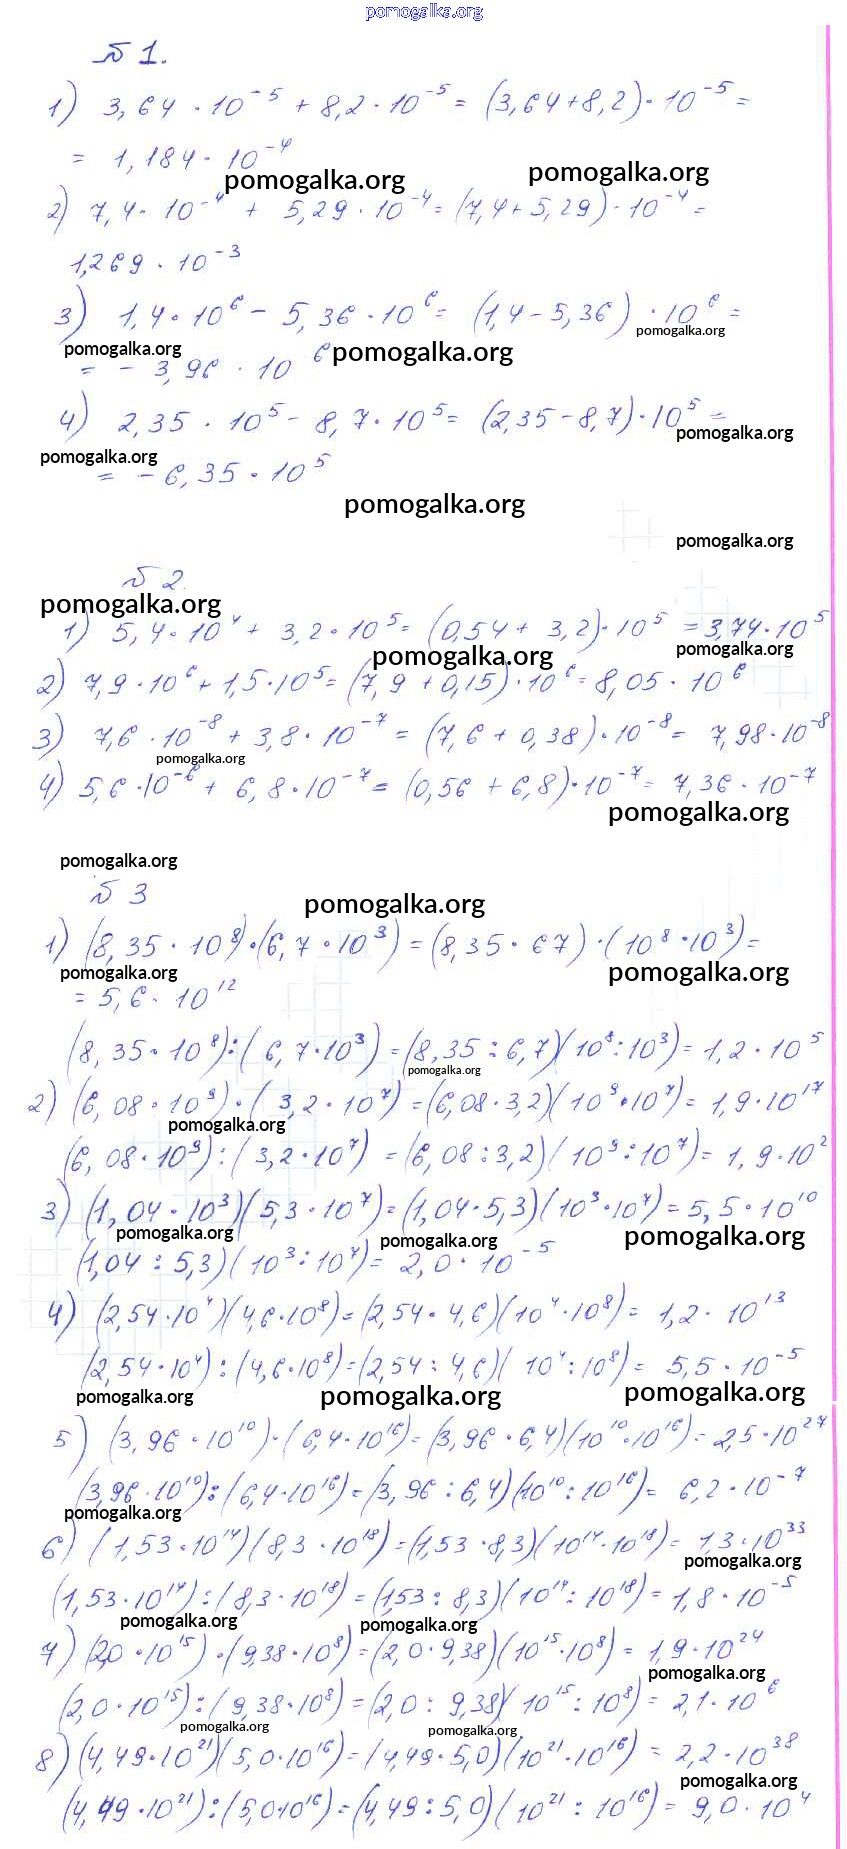 pomogalka.org
№ 1.
1) 3,64 · 10⁻⁵ + 8,2 · 10⁻⁵ = (3,64+8,2) · 10⁻⁵ =
= 1,184 · 10⁻⁴
pomogalka.org pomogalka.org
2) 7,4 · 10⁻⁴ + 5,29 · 10⁻⁴ = (7,4+5,29) · 10⁻⁴ =
1,269 · 10⁻³
3) 1,4 · 10⁶ - 5,36 · 10⁶ = (1,4 - 5,36) · 10⁶ =
pomogalka.org
pomogalka.org pomogalka.org
= - 3,96 · 10⁶
4) 2,35 · 10⁵ - 8,7 · 10⁵ = (2,35 - 8,7) · 10⁵ =
pomogalka.org
pomogalka.org
= - 6,35 · 10⁵
pomogalka.org
pomogalka.org
№ 2.
pomogalka.org
1) 5,4 · 10⁴ + 3,2 · 10⁵ = (0,54 + 3,2) · 10⁵ = 3,74 · 10⁵
pomogalka.org pomogalka.org
2) 7,9 · 10⁶ + 1,5 · 10⁵ = (7,9 + 0,15) · 10⁶ = 8,05 · 10⁶
3) 7,6 · 10⁻⁸ + 3,8 · 10⁻⁷ = (7,6 + 0,38) · 10⁻⁸ = 7,98 · 10⁻⁸
pomogalka.org
4) 5,6 · 10⁻⁶ + 6,8 · 10⁻⁷ = (0,56 + 6,8) · 10⁻⁷ = 7,36 · 10⁻⁷
pomogalka.org
pomogalka.org
№ 3
pomogalka.org
1) (8,35 · 10⁸) · (6,7 · 10³) = (8,35 · 67) · (10⁸ · 10³) =
pomogalka.org pomogalka.org
= 5,6 · 10¹²
(8,35 · 10⁸) : (6,7 · 10³) = (8,35 : 6,7)(10⁸ : 10³) = 1,2 · 10⁵
pomogalka.org
2) (6,08 · 10⁹) · (3,2 · 10⁷) = (6,08 · 3,2)(10⁹ · 10⁷) = 1,9 · 10¹⁷
pomogalka.org
(6,08 · 10⁹) : (3,2 · 10⁷) = (6,08 : 3,2)(10⁹ : 10⁷) = 1,9 · 10²
3) (1,04 · 10³)(5,3 · 10⁷) = (1,04 · 5,3)(10³ · 10⁷) = 5,5 · 10¹⁰
pomogalka.org pomogalka.org pomogalka.org
(1,04 : 5,3)(10³ : 10⁷) = 2,0 · 10⁻⁵
4) (2,54 · 10⁴)(4,6 · 10⁸) = (2,54 · 4,6)(10⁴ · 10⁸) = 1,2 · 10¹³
(2,54 · 10⁴) : (4,6 · 10⁸) = (2,54 : 4,6)(10⁴ : 10⁸) = 5,5 · 10⁻⁵
pomogalka.org pomogalka.org pomogalka.org
5) (3,96 · 10¹⁰) · (6,4 · 10¹⁶) = (3,96 · 6,4)(10¹⁰ · 10¹⁶) = 2,5 · 10²⁷
(3,96 · 10¹⁰) : (6,4 · 10¹⁶) = (3,96 : 6,4)(10¹⁰ : 10¹⁶) = 6,2 · 10⁻⁷
pomogalka.org
6) (1,53 · 10¹⁴)(8,3 · 10¹⁸) = (1,53 · 8,3)(10¹⁴ · 10¹⁸) = 1,3 · 10³³
pomogalka.org
(1,53 · 10¹⁴) : (8,3 · 10¹⁸) = (1,53 : 8,3)(10¹⁴ : 10¹⁸) = 1,8 · 10⁻⁵
pomogalka.org pomogalka.org
7) (2,0 · 10¹⁵) · (9,38 · 10⁸) = (2,0 · 9,38)(10¹⁵ · 10⁸) = 1,9 · 10²⁴
pomogalka.org
(2,0 · 10¹⁵) : (9,38 · 10⁸) = (2,0 : 9,38)(10¹⁵ : 10⁸) = 2,1 · 10⁶
pomogalka.org pomogalka.org
8) (4,49 · 10²¹)(5,0 · 10¹⁶) = (4,49 · 5,0)(10²¹ · 10¹⁶) = 2,2 · 10³⁸
pomogalka.org
(4,49 · 10²¹) : (5,0 · 10¹⁶) = (4,49 : 5,0)(10²¹ : 10¹⁶) = 9,0 · 10⁴